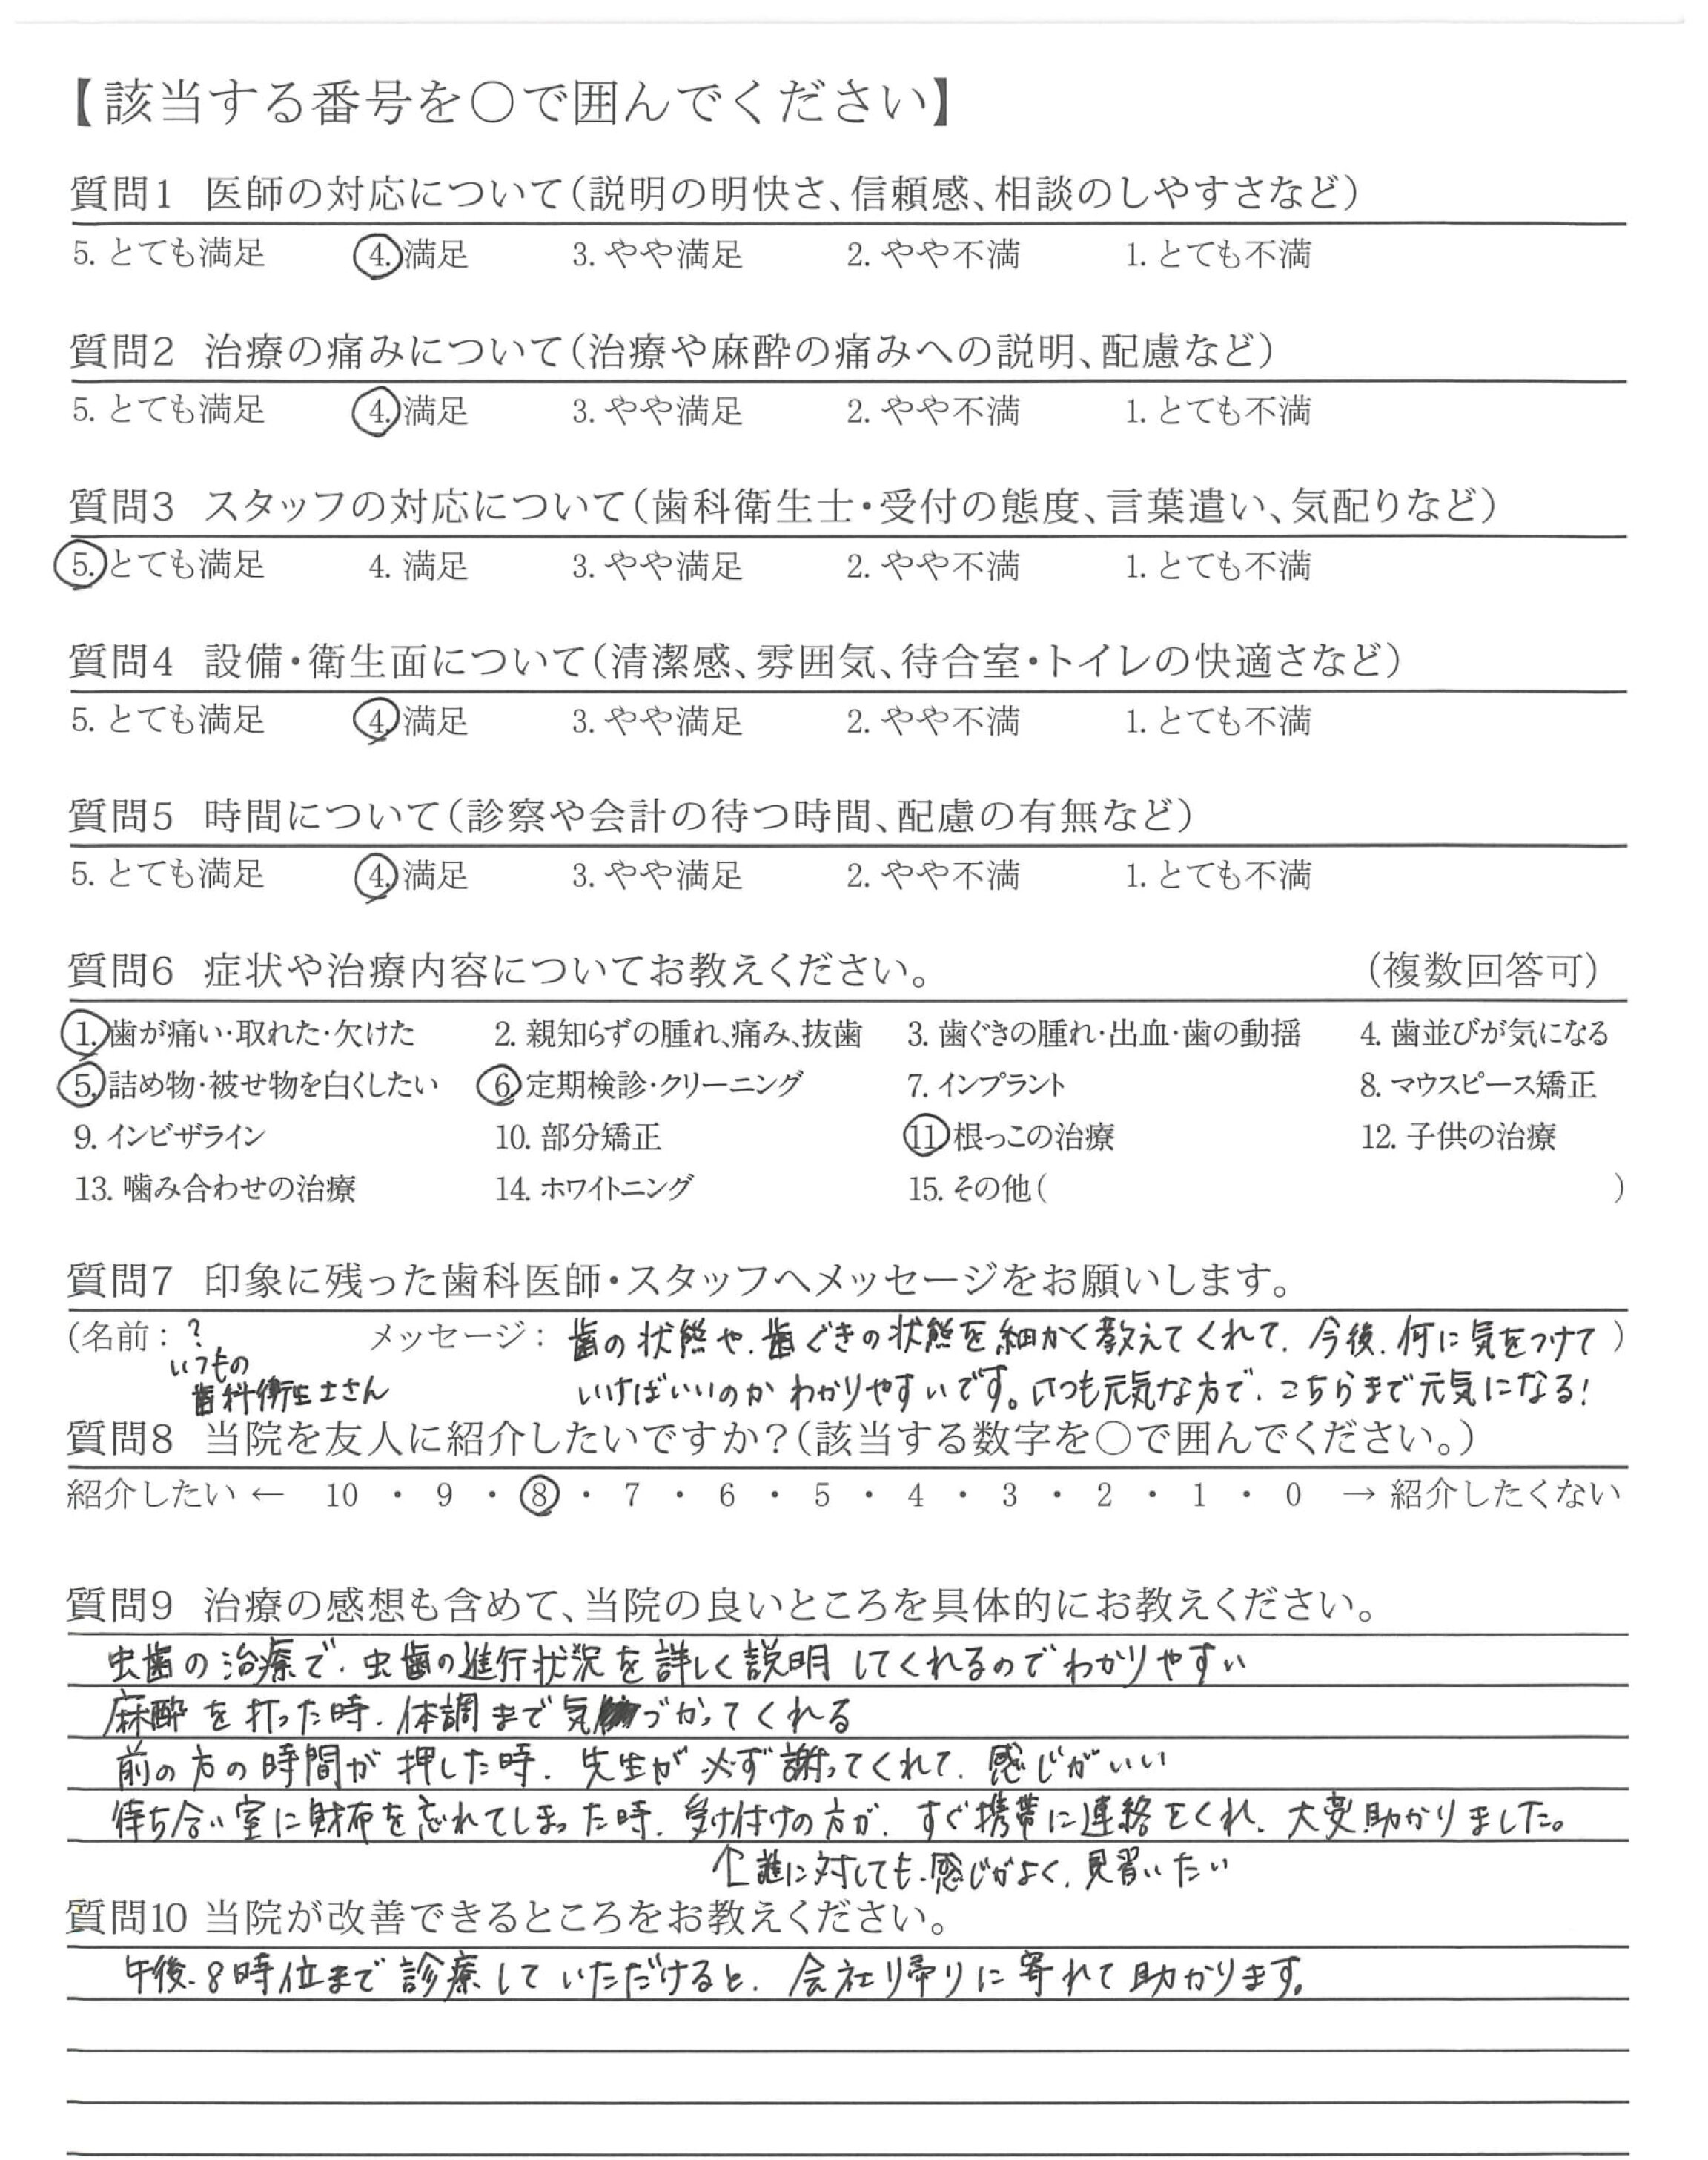 【該当する番号を○で囲んでください】
質問1 医師の対応について(説明の明快さ、信頼感、相談のしやすさなど)
5. とても満足 4. 満足 3. やや満足 2. やや不満 1. とても不満
質問2 治療の痛みについて(治療や麻酔の痛みへの説明、配慮など)
5. とても満足 4. 満足 3. やや満足 2. やや不満 1. とても不満
質問3 スタッフの対応について(歯科衛生士・受付の態度、言葉遣い、気配りなど)
5. とても満足 4. 満足 3. やや満足 2. やや不満 1. とても不満
質問4 設備・衛生面について(清潔感、雰囲気、待合室・トイレの快適さなど)
5. とても満足 4. 満足 3. やや満足 2. やや不満 1. とても不満
質問5 時間について(診察や会計の待つ時間、配慮の有無など)
5. とても満足 4. 満足 3. やや満足 2. やや不満 1. とても不満
質問6 症状や治療内容についてお教えください。 (複数回答可)
1. 歯が痛い・取れた・欠けた 2. 親知らずの腫れ、痛み、抜歯 3. 歯ぐきの腫れ・出血・歯の動揺 4. 歯並びが気になる
5. 詰め物・被せ物を白くしたい 6. 定期検診・クリーニング 7. インプラント 8. マウスピース矯正
9. インビザライン 10. 部分矯正 11. 根っこの治療 12. 子供の治療
13. 噛み合わせの治療 14. ホワイトニング 15. その他( )
質問7 印象に残った歯科医師・スタッフへメッセージをお願いします。
(名前: ? メッセージ: 歯の状態や、歯ぐきの状態を細かく教えてくれて、今後、何に気をつけて )
いつもの
歯科衛生士さん いけばいいのか わかりやすいです。いつも元気な方で、こちらまで元気になる!
質問8 当院を友人に紹介したいですか?(該当する数字を○で囲んでください。)
紹介したい ← 10 ・ 9 ・ 8 ・ 7 ・ 6 ・ 5 ・ 4 ・ 3 ・ 2 ・ 1 ・ 0 → 紹介したくない
質問9 治療の感想も含めて、当院の良いところを具体的にお教えください。
虫歯の治療で、虫歯の進行状況を詳しく説明してくれるのでわかりやすい
麻酔を打った時、体調まで気づかってくれる
前の方の時間が押した時、先生が必ず謝ってくれて、感じがいい
待ち合い室に財布を忘れてしまった時、受け付けの方が、すぐ携帯に連絡をくれ、大変助かりました。
↑誰に対しても、感じがよく、見習いたい
質問10 当院が改善できるところをお教えください。
午後、8時位まで診療していただけると、会社帰りに寄れて助かります。